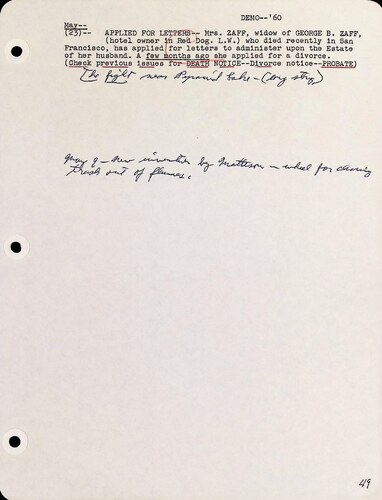 DEMO--'60
May--
(23)-- APPLIED FOR LETTERS-- Mrs. ZAFF, widow of GEORGE B. ZAFF,
(hotel owner in Red Dog. L.W.) who died recently in San
Francisco, has applied for letters to administer upon the Estate
of her husband. A few months ago she applied for a divorce.
(Check previous issues for DEATH NOTICE--Divorce notice--PROBATE)
The fight near Pyramid Lake - (long story)
May 9 - New invention by Matteson - wheel for cleaning
trash out of flumes.
49